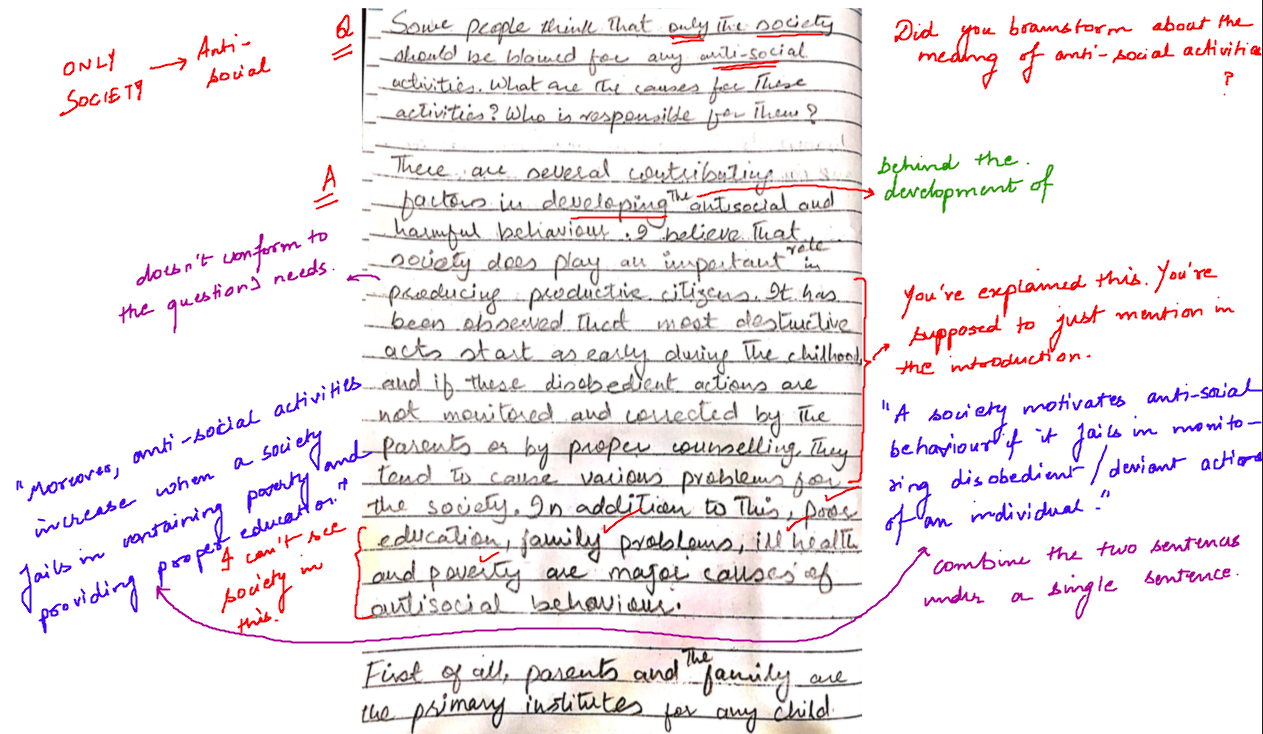 ONLY
SOCIETY → Anti-
social
Q
Some people think that only the society
should be blamed for any anti-social
activities. What are the causes for these
activities? Who is responsible for them?
Did you brainstorm about the
meaning of anti-social activities
?
A
There are several contributing
factors in developing the antisocial and
harmful behaviour. I believe that
society does play an important role in
producing productive citizens. It has
been observed that most destructive
acts start as early during the chilhood
and if these disobedient actions are
not monitored and corrected by the
parents or by proper counselling, they
tend to cause various problems for
the society. In addition to this, poor
education, family problems, ill health
and poverty are major causes of
antisocial behaviour.
First of all, parents and the family are
the primary institutes for any child
behind the
development of
doesn't conform to
the question's needs.
You've explained this. You're
supposed to just mention in
the introduction.
"A society motivates anti-social
behaviour if it fails in monito-
ring disobedient / deviant actions
of an individual."
combine the two sentences
under a single sentence.
"Moreover, anti-social activities
increase when a society
fails in containing poverty and
providing proper education."
I can't see
society in
this.